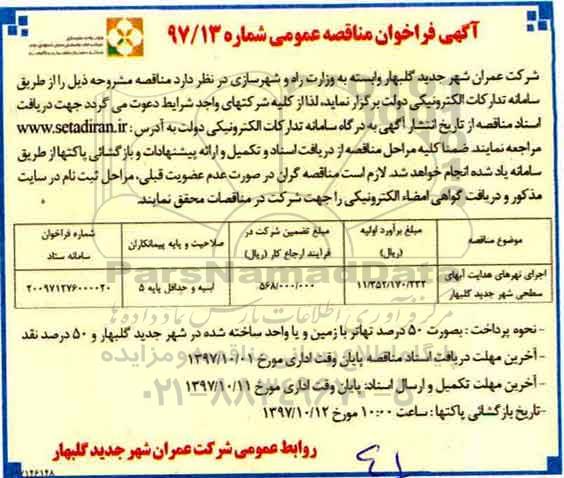 آگهی فراخوان مناقصه عمومی شماره ۹۷/۱۳
شرکت عمران شهر جدید گلبهار وابسته به وزارت راه و شهرسازی در نظر دارد مناقصه مشروحه ذیل را از طریق
سامانه تدارکات الکترونیکی دولت برگزار نماید، لذا از کلیه شرکتهای واجد شرایط دعوت می گردد جهت دریافت
اسناد مناقصه از تاریخ انتشار آگهی به درگاه سامانه تدارکات الکترونیکی دولت به آدرس : www.setadiran.ir
مراجعه نمایند. ضمنا کلیه مراحل مناقصه از دریافت اسناد و تکمیل و ارائه پیشنهادات و بازگشائی پاکتها از طریق
سامانه یاد شده انجام خواهد شد. لازم است مناقصه گران در صورت عدم عضویت قبلی، مراحل ثبت نام در سایت
مذکور و دریافت گواهی امضاء الکترونیکی را جهت شرکت در مناقصات محقق نمایند.
موضوع مناقصه
مبلغ برآورد اولیه (ریال)
مبلغ تضمین شرکت در فرآیند ارجاع کار (ریال)
صلاحیت و پایه پیمانکاران
شماره فراخوان سامانه ستاد
اجرای نهرهای هدایت آبهای سطحی شهر جدید گلبهار
۱۱/۳۵۲/۱۷۰/۲۳۲
۵۶۸/۰۰۰/۰۰۰
ابنیه و حداقل پایه ۵
۲۰۰۹۷۱۲۷۶۰۰۰۰۲۰
ParsNamadData
مرکز فرآوری اطلاعات پارس نماد داده ها
- نحوه پرداخت : بصورت ۵۰ درصد تهاتر با زمین و یا واحد ساخته شده در شهر جدید گلبهار و ۵۰ درصد نقد
- آخرین مهلت دریافت اسناد مناقصه پایان وقت اداری مورخ ۱۳۹۷/۱۰/۰۱
- آخرین مهلت تکمیل و ارسال اسناد: پایان وقت اداری مورخ ۱۳۹۷/۱۰/۱۱
- تاریخ بازگشائی پاکتها : ساعت ۱۰:۰۰ مورخ ۱۳۹۷/۱۰/۱۲
۰۲۱-۸۸۳۴۹۶۷۰-۵
روابط عمومی شرکت عمران شهر جدید گلبهار